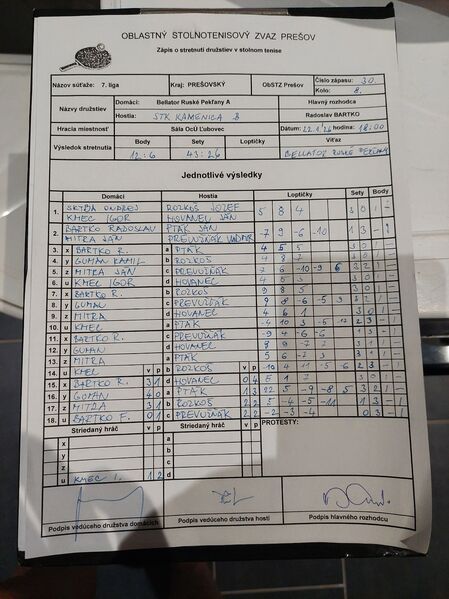 OBLASTNÝ STOLNOTENISOVÝ ZVÄZ PREŠOV
Zápis o stretnutí družstiev v stolnom tenise
Názov súťaže: 7. liga Kraj: PREŠOVSKÝ ObSTZ Prešov Číslo zápasu: 30.
Kolo: 8.
Názvy družstiev Domáci: Bellator Ruské Pekľany A Hlavný rozhodca
Hostia: STK KAMENICA B Radoslav BARTKO
Hracia miestnosť Sála OcÚ Ľubovec Dátum: 22.1.26 hodina: 18:00
Výsledok stretnutia Body Sety Loptičky Víťaz
12:6 43:26 BELLATOR RUSKÉ PEKĽANY
Jednotlivé výsledky
Domáci Hostia Loptičky Sety Body
1. SKYBA ONDREJ ROZKOŠ JOZEF 5 8 4 3 0 1 -
KMEC IGOR HOVANEC JÁN
2. BARTKO RADOSLAV PTÁK JÁN 7 -9 -6 -10 1 3 - 1
MITRA JÁN PREVUŽŇÁK
3. x BARTKO R. a PTÁK 4 5 5 3 0 1 -
4. y GUMAN KAMIL b ROZKOŠ 4 8 7 3 0 1 -
5. z MITRA JÁN c PREVUŽŇÁK 7 6 -10 -9 6 3 2 1 -
6. u KMEC IGOR d HOVANEC 4 8 4 3 0 1 -
7. x BARTKO R. b ROZKOŠ 9 8 5 3 0 1 -
8. y GUMAN c PREVUŽŇÁK 9 8 -6 -5 3 2 1 -
9. z MITRA d HOVANEC 4 6 1 3 0 1 -
10. u KMEC a PTÁK -4 10 3 -5 -12 2 3 - 1
11. x BARTKO R. c PREVUŽŇÁK -9 4 -6 -6 1 3 - 1
12. y GUMAN d HOVANEC 8 9 7 3 0 1 -
13. z MITRA a PTÁK 5 6 -7 3 3 1 1 -
14. u KMEL v p b ROZKOŠ v p -10 4 11 -5 -6 2 3 - 1
15. x BARTKO R. 3 1 d HOVANEC 0 4 5 1 7 3 0 1 -
16. y GUMAN 4 0 a PTÁK 1 3 12 5 -9 -8 5 3 2 1 -
17. z MITRA 3 1 b ROZKOŠ 2 2 5 -4 -5 -11 1 3 - 1
18. u BARTKO F. 0 1 c PREVUŽŇÁK 2 2 -2 -3 -4 0 3 - 1
Striedaný hráč v p Striedaný hráč v p PROTESTY:
x a
y b
z c
u KMEC I. 1 2 d
Podpis vedúceho družstva domácich Podpis vedúceho družstva hostí Podpis hlavného rozhodcu